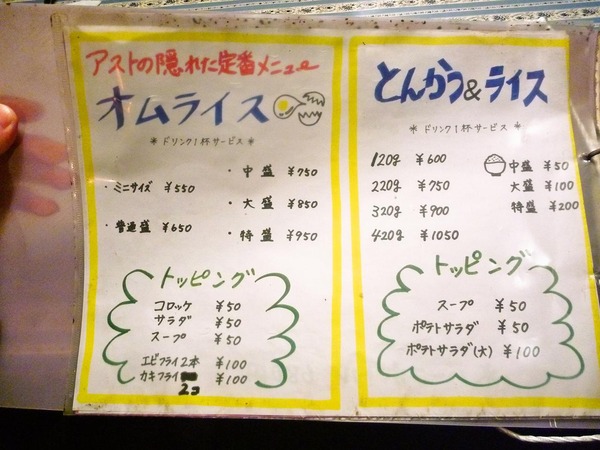 アストの隠れた定番メニュー
オムライス
*ドリンク1杯サービス*
・ミニサイズ ¥550
・普通盛 ¥650
・中盛 ¥750
・大盛 ¥850
・特盛 ¥950
トッピング
コロッケ ¥50
サラダ ¥50
スープ ¥50
エビフライ2本 ¥100
カキフライ ¥100
2コ
とんかつ&ライス
*ドリンク1杯サービス*
120g ¥600
220g ¥750
320g ¥900
420g ¥1050
中盛 ¥50
大盛 ¥100
特盛 ¥200
トッピング
スープ ¥50
ポテトサラダ ¥50
ポテトサラダ(大) ¥100